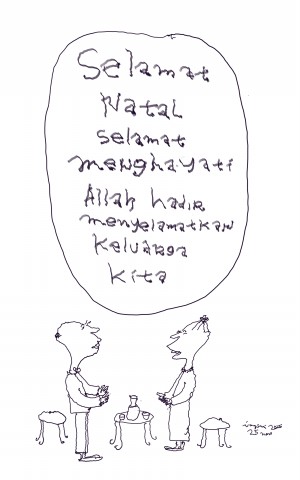 Selamat
Natal
selamat
menghayati
Allah hadir
menyelamatkan
keluarga
kita
25 nov